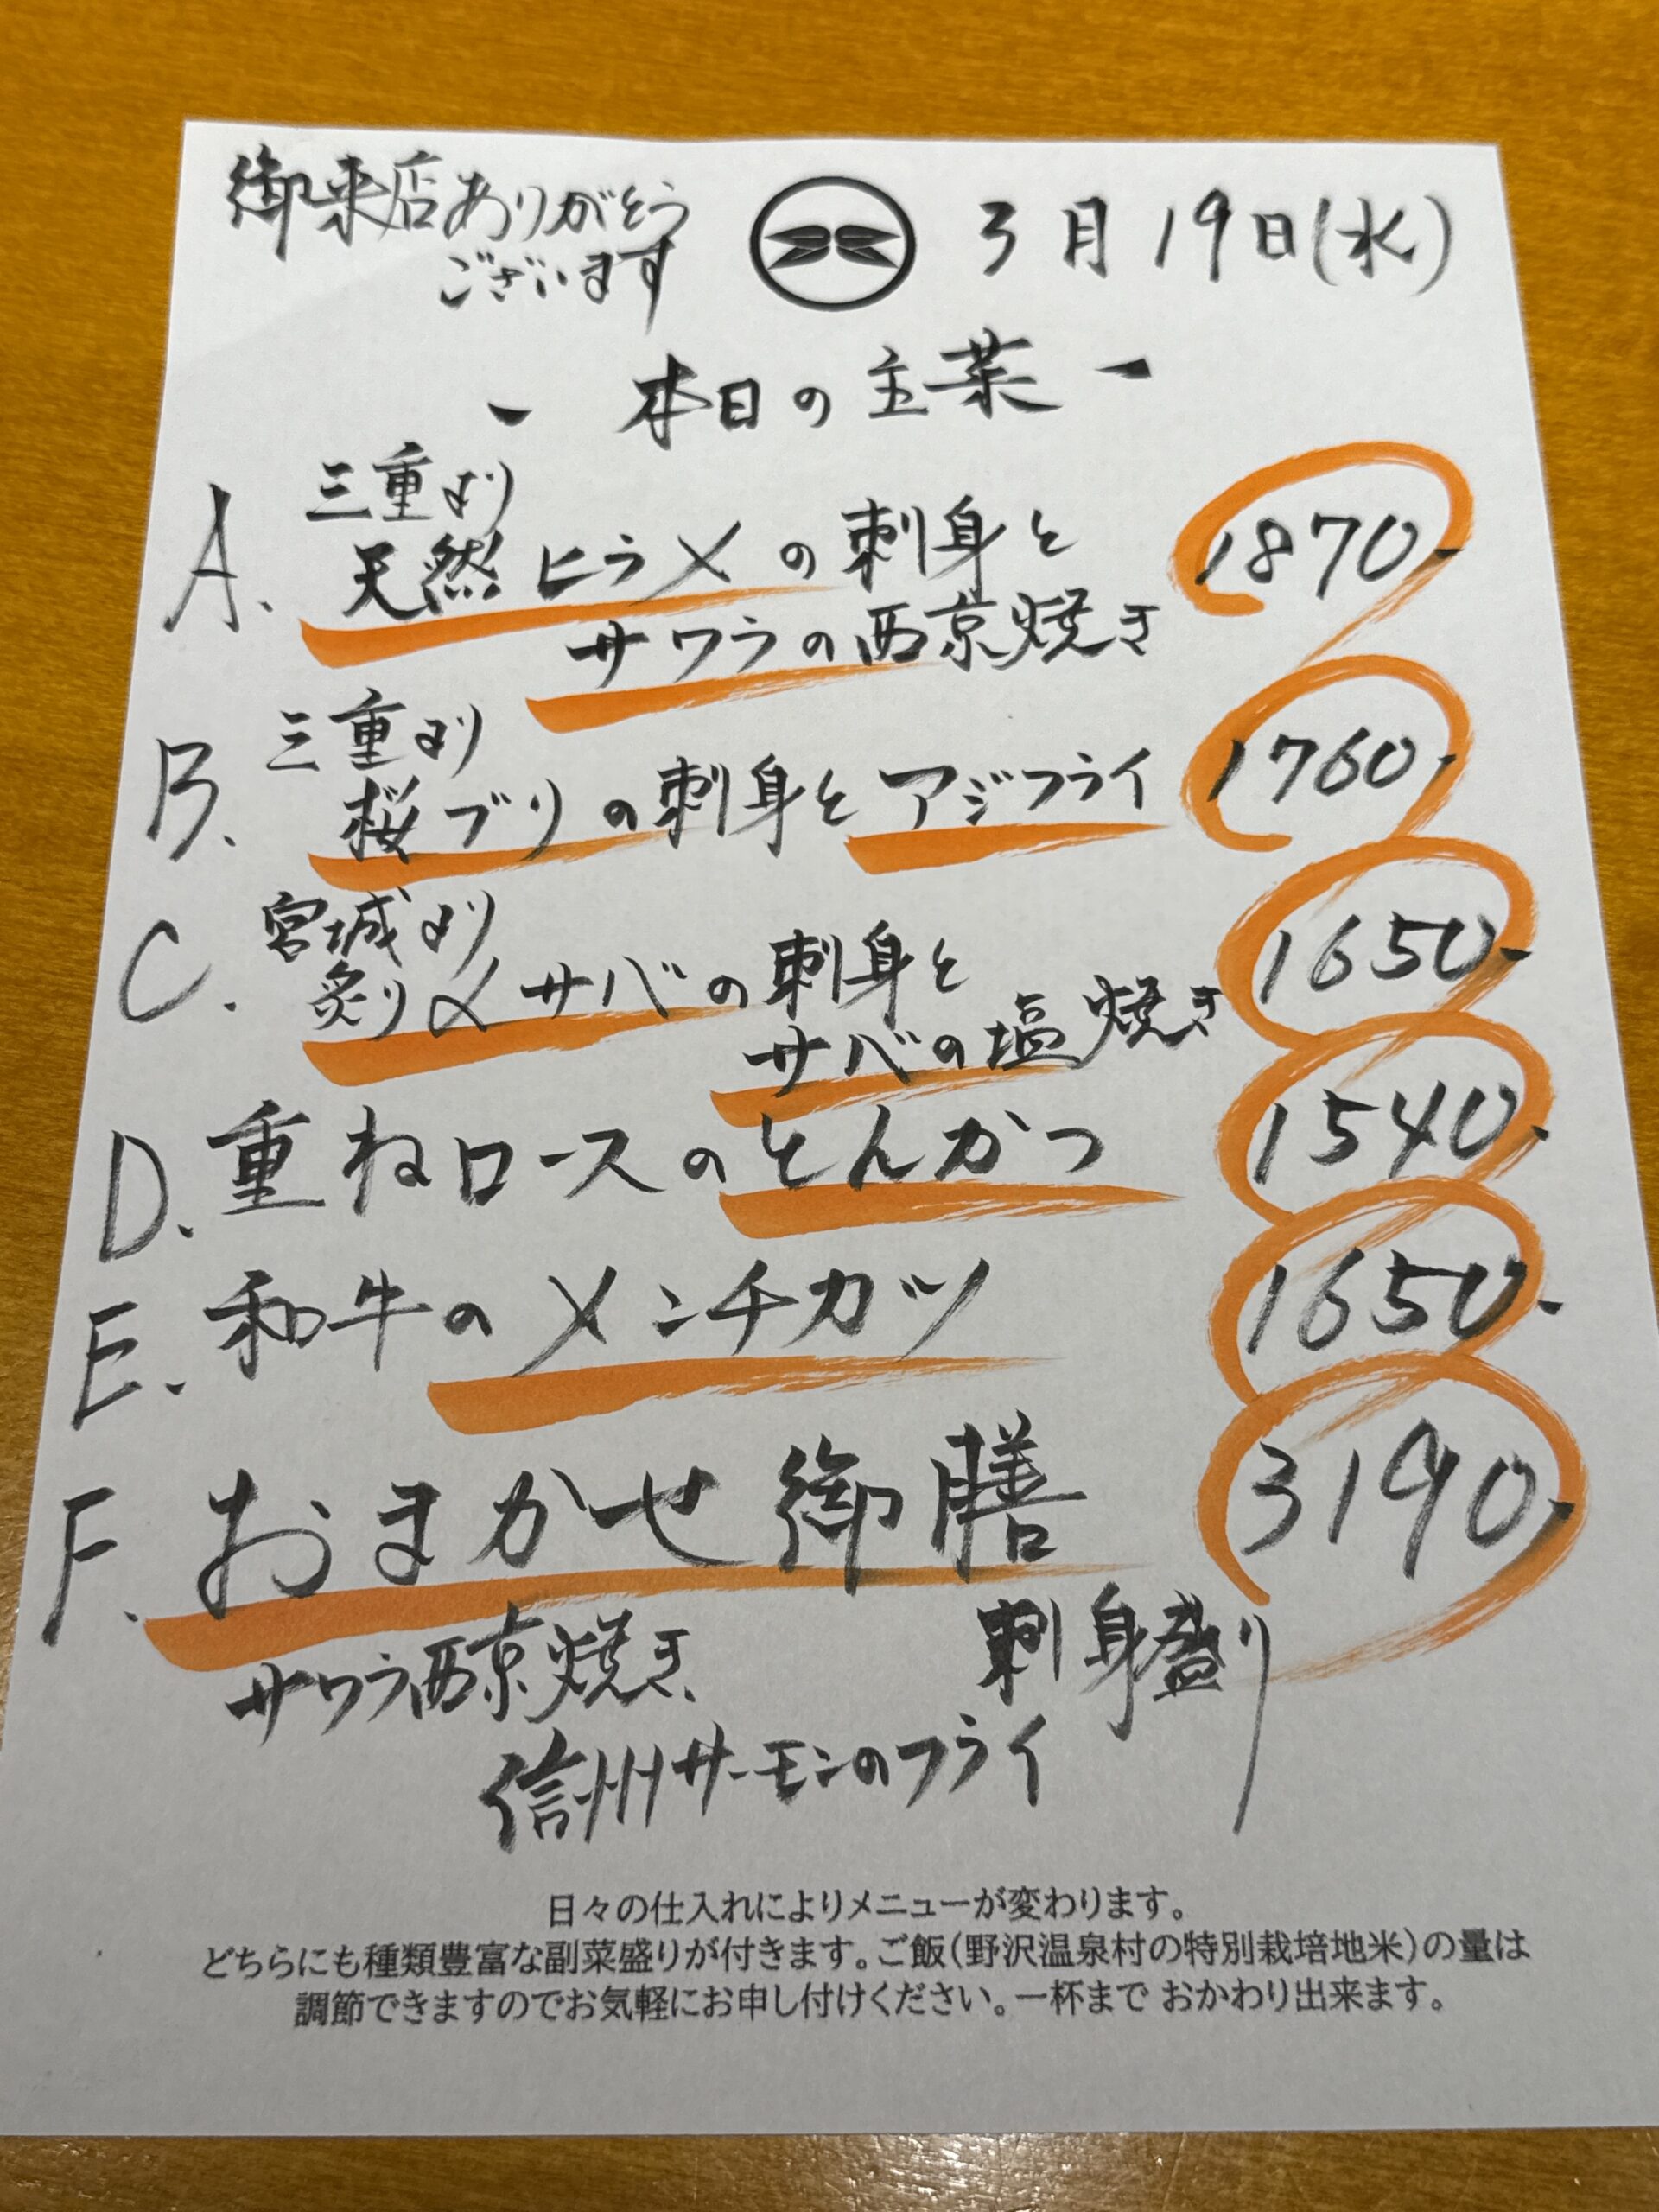 御来店ありがとう
ございます
3月19日(水)
- 本日の主菜 -
A. 三重より
天然ヒラメの刺身と
サワラの西京焼き
1870-
B. 三重より
桜ブリの刺身とアジフライ
1760-
C. 宮城より
炙り〆サバの刺身と
サバの塩焼き
1650-
D. 重ねロースのとんかつ
1540-
E. 和牛のメンチカツ
1650-
F. おまかせ御膳
3190-
サワラ西京焼き
刺身盛り
信州サーモンのフライ
日々の仕入れによりメニューが変わります。
どちらにも種類豊富な副菜盛りが付きます。ご飯(野沢温泉村の特別栽培地米)の量は
調節できますのでお気軽にお申し付けください。一杯まで おかわり出来ます。